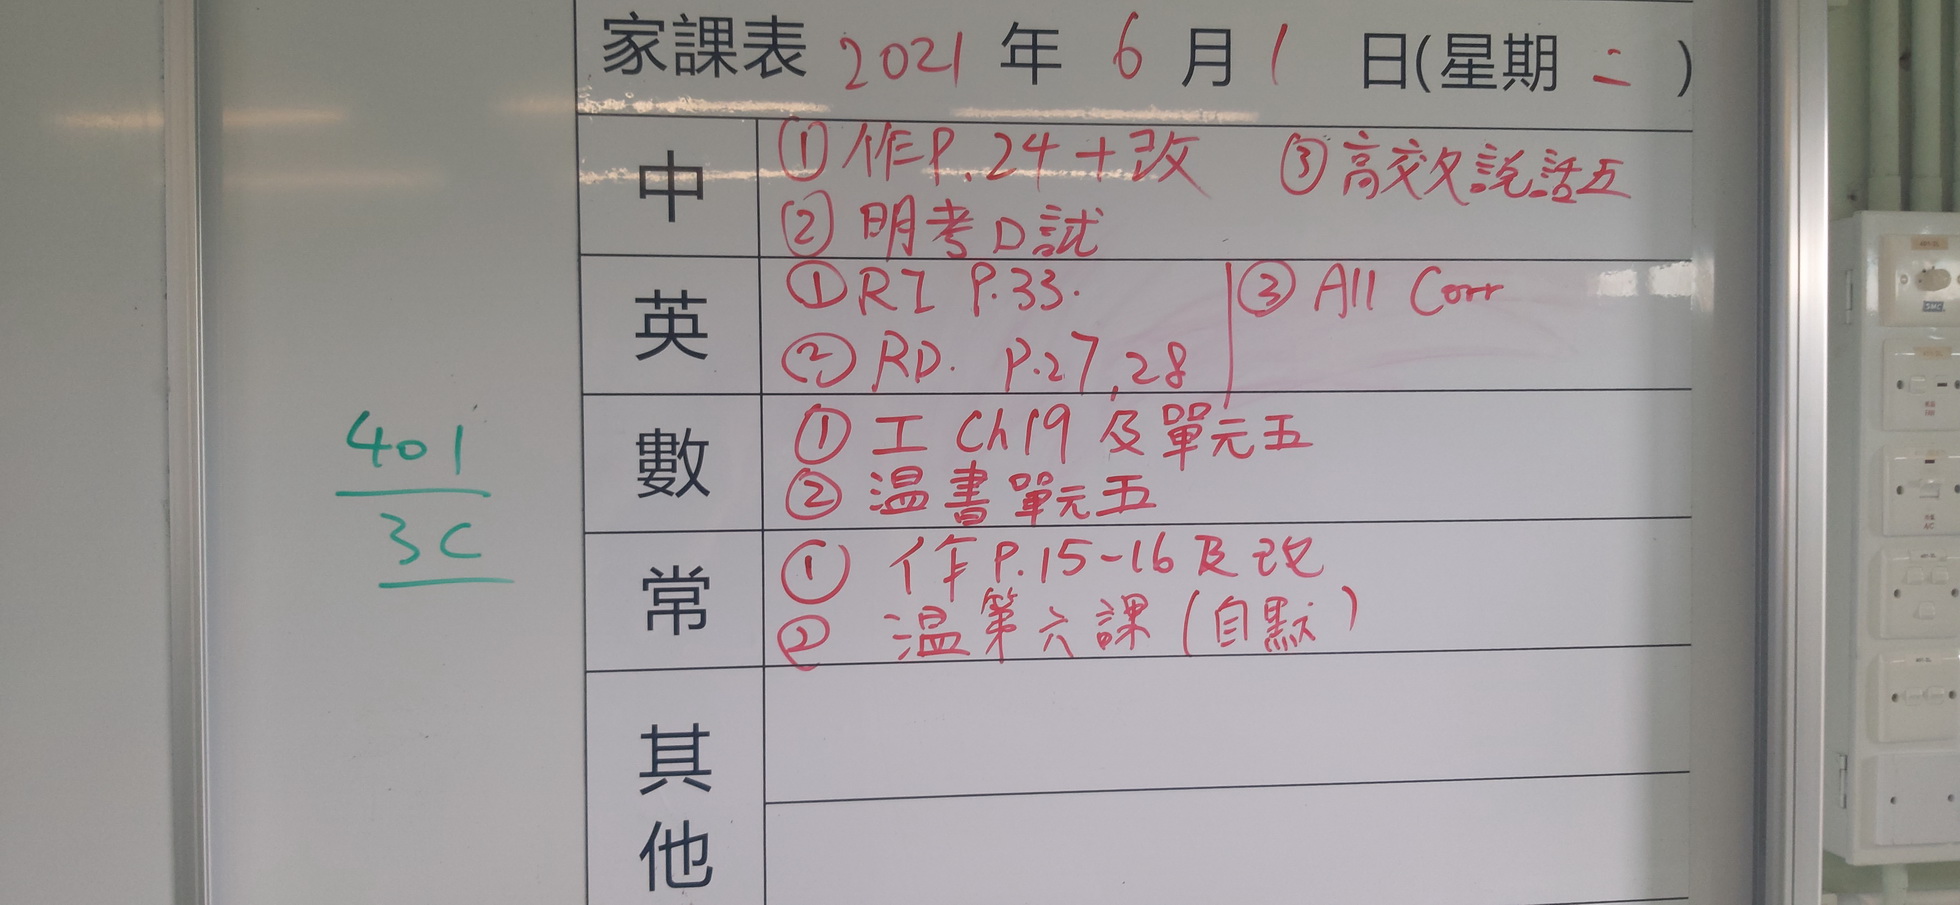 家課表 2021 年 6 月 1 日(星期 二 )
中
① 作P.24+改 ③ 高效說話五
② 明考D試
英
① RI P.33. ③ All Corr
② RD. P.27,28
數
① 工 Ch19 及單元五
② 温書單元五
常
① 作P.15-16及改
② 温第六課(自點)
其他
401
3C